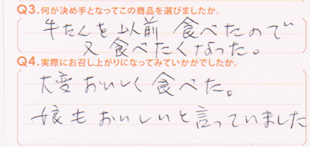 Q3.何が決め手となってこの商品を選びましたか。
牛たんを以前 食べたので
又 食べたくなった。
Q4.実際にお召し上がりになってみていかがでしたか。
大変おいしく食べた。
娘もおいしいと言っていました